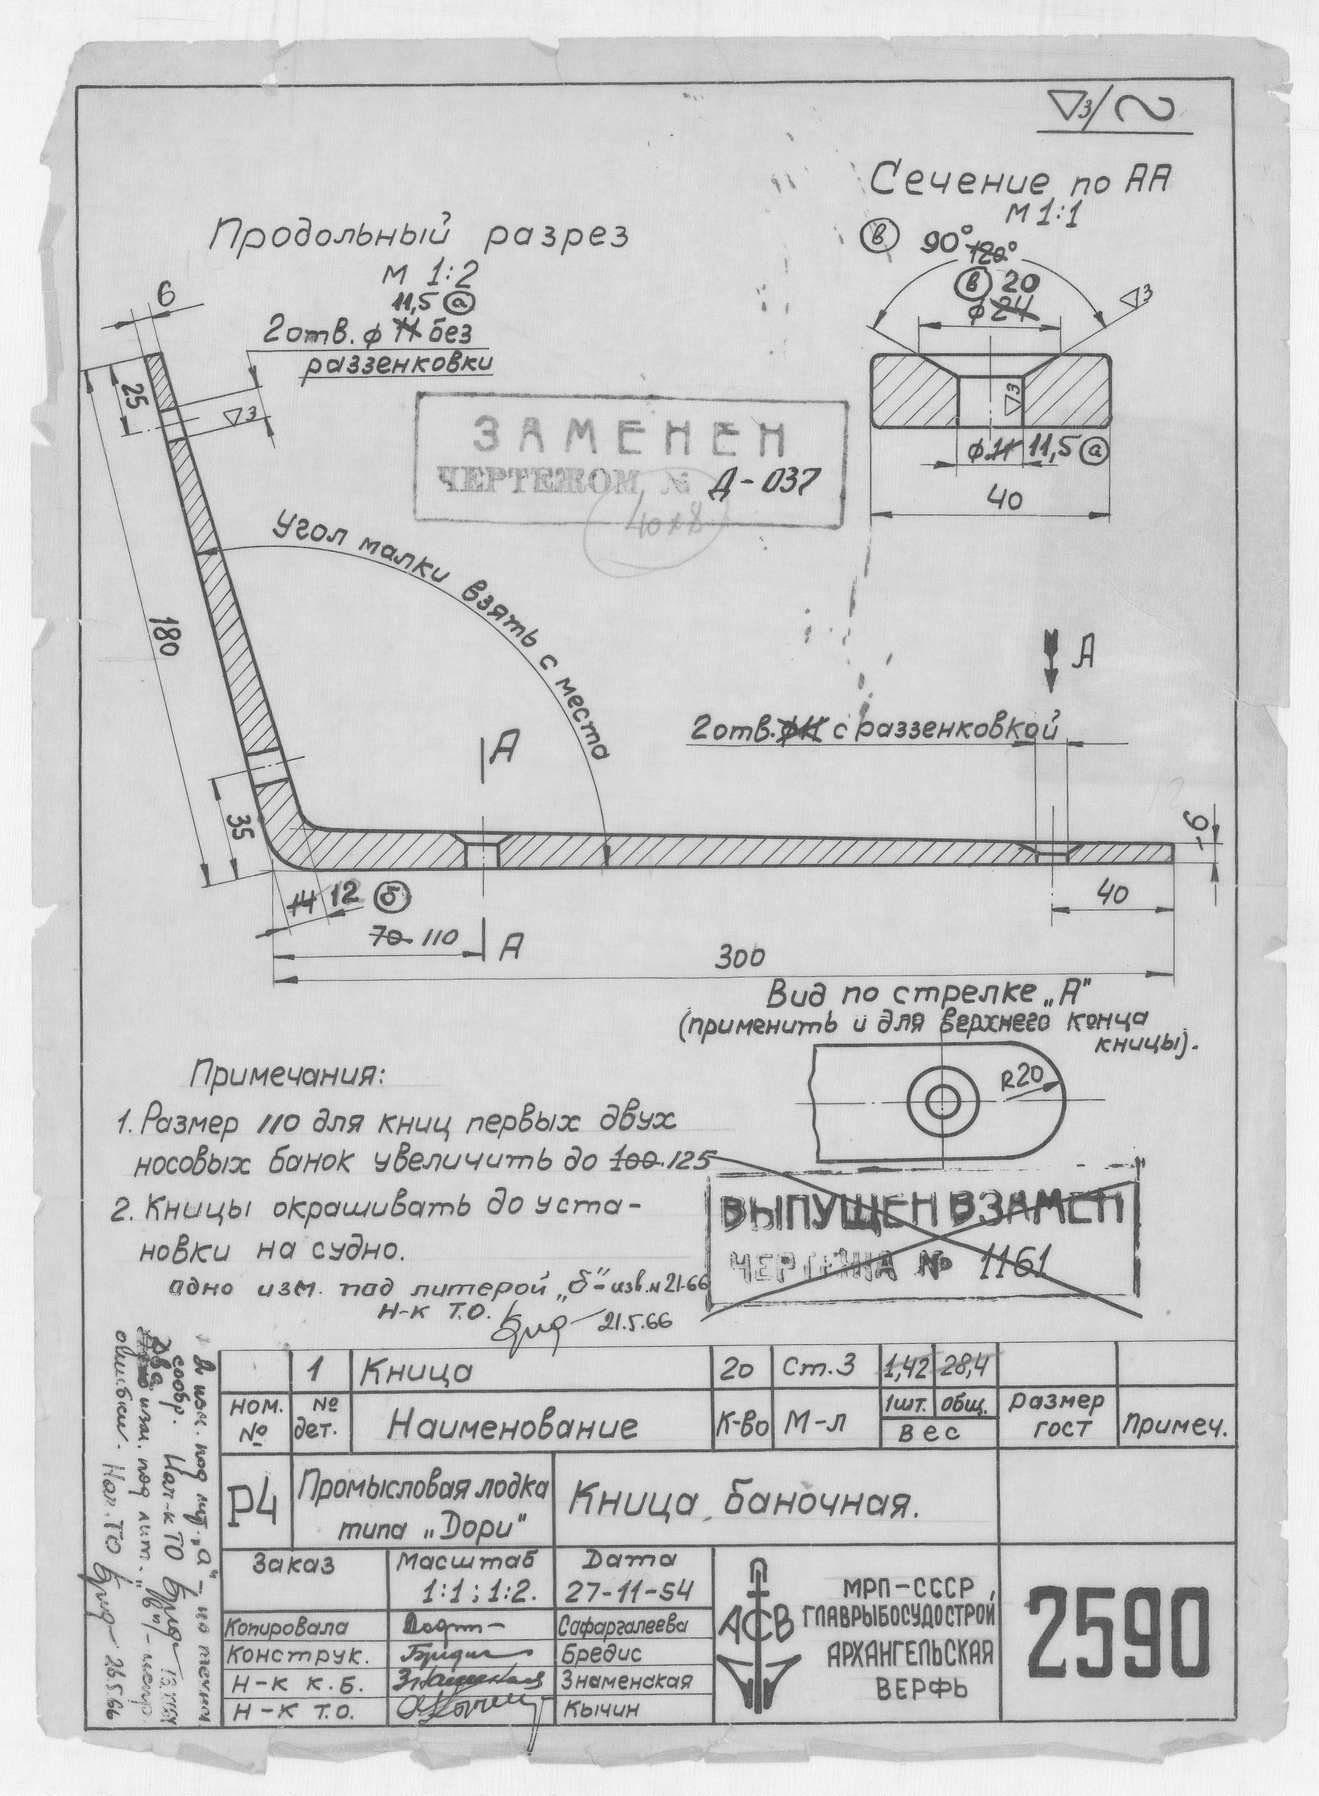 ▽3/~
Сечение по АА
М 1:1
в 90° 120°
в 20
ф 24
▽3
▽3
ф 11 11,5 а
40
Продольный разрез
М 1:2
11,5 а
2 отв. ф 11 без
раззенковки
6
25
▽3
180
35
ЗАМЕНЕН
ЧЕРТЕЖОМ № Д-037
40×8
Угол малки взять с места
А
А
2 отв. ф11 с раззенковкой
6
14 12 б
40
70 110
А
300
Вид по стрелке „А"
(применить и для верхнего конца
кницы).
R20
Примечания:
1. Размер 110 для книц первых двух
носовых банок увеличить до 100 125
2. Кницы окрашивать до уста-
новки на судно.
адно изм. под литерой „б"- изв. н 21-66
Н-к Т.О. 21.5.66
ВЫПУЩЕН ВЗАМЕН
ЧЕРТЕЖА № 1161
1 Кница 20 Ст.3 1,42 28,4
Ном. № № дет. Наименование К-во М-л 1шт. общ. Вес Размер гост Примеч.
Р4 Промысловая лодка типа „Дори" Кница баночная.
Заказ Масштаб Дата
1:1; 1:2. 27-11-54
Копировала Сафаргалеева
Конструк. Бредис
Н-к К.Б. Знаменская
Н-к Т.О. Кычин
АСВ
МРП-СССР,
ГЛАВРЫБОСУДОСТРОЙ
АРХАНГЕЛЬСКАЯ
ВЕРФЬ
2590
изм. под лит. „а" -
сообр. Нач-к ТО
Два изм. под лит. „в" -
ошибки. Нач. ТО 26.5.66